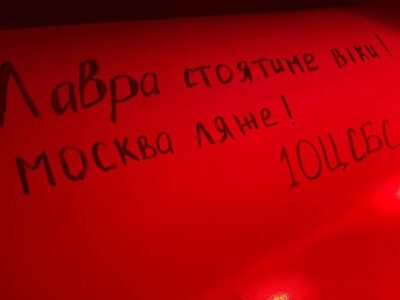 Лавра стоятиме віки!
Москва ляже!
1ОЦ СБС